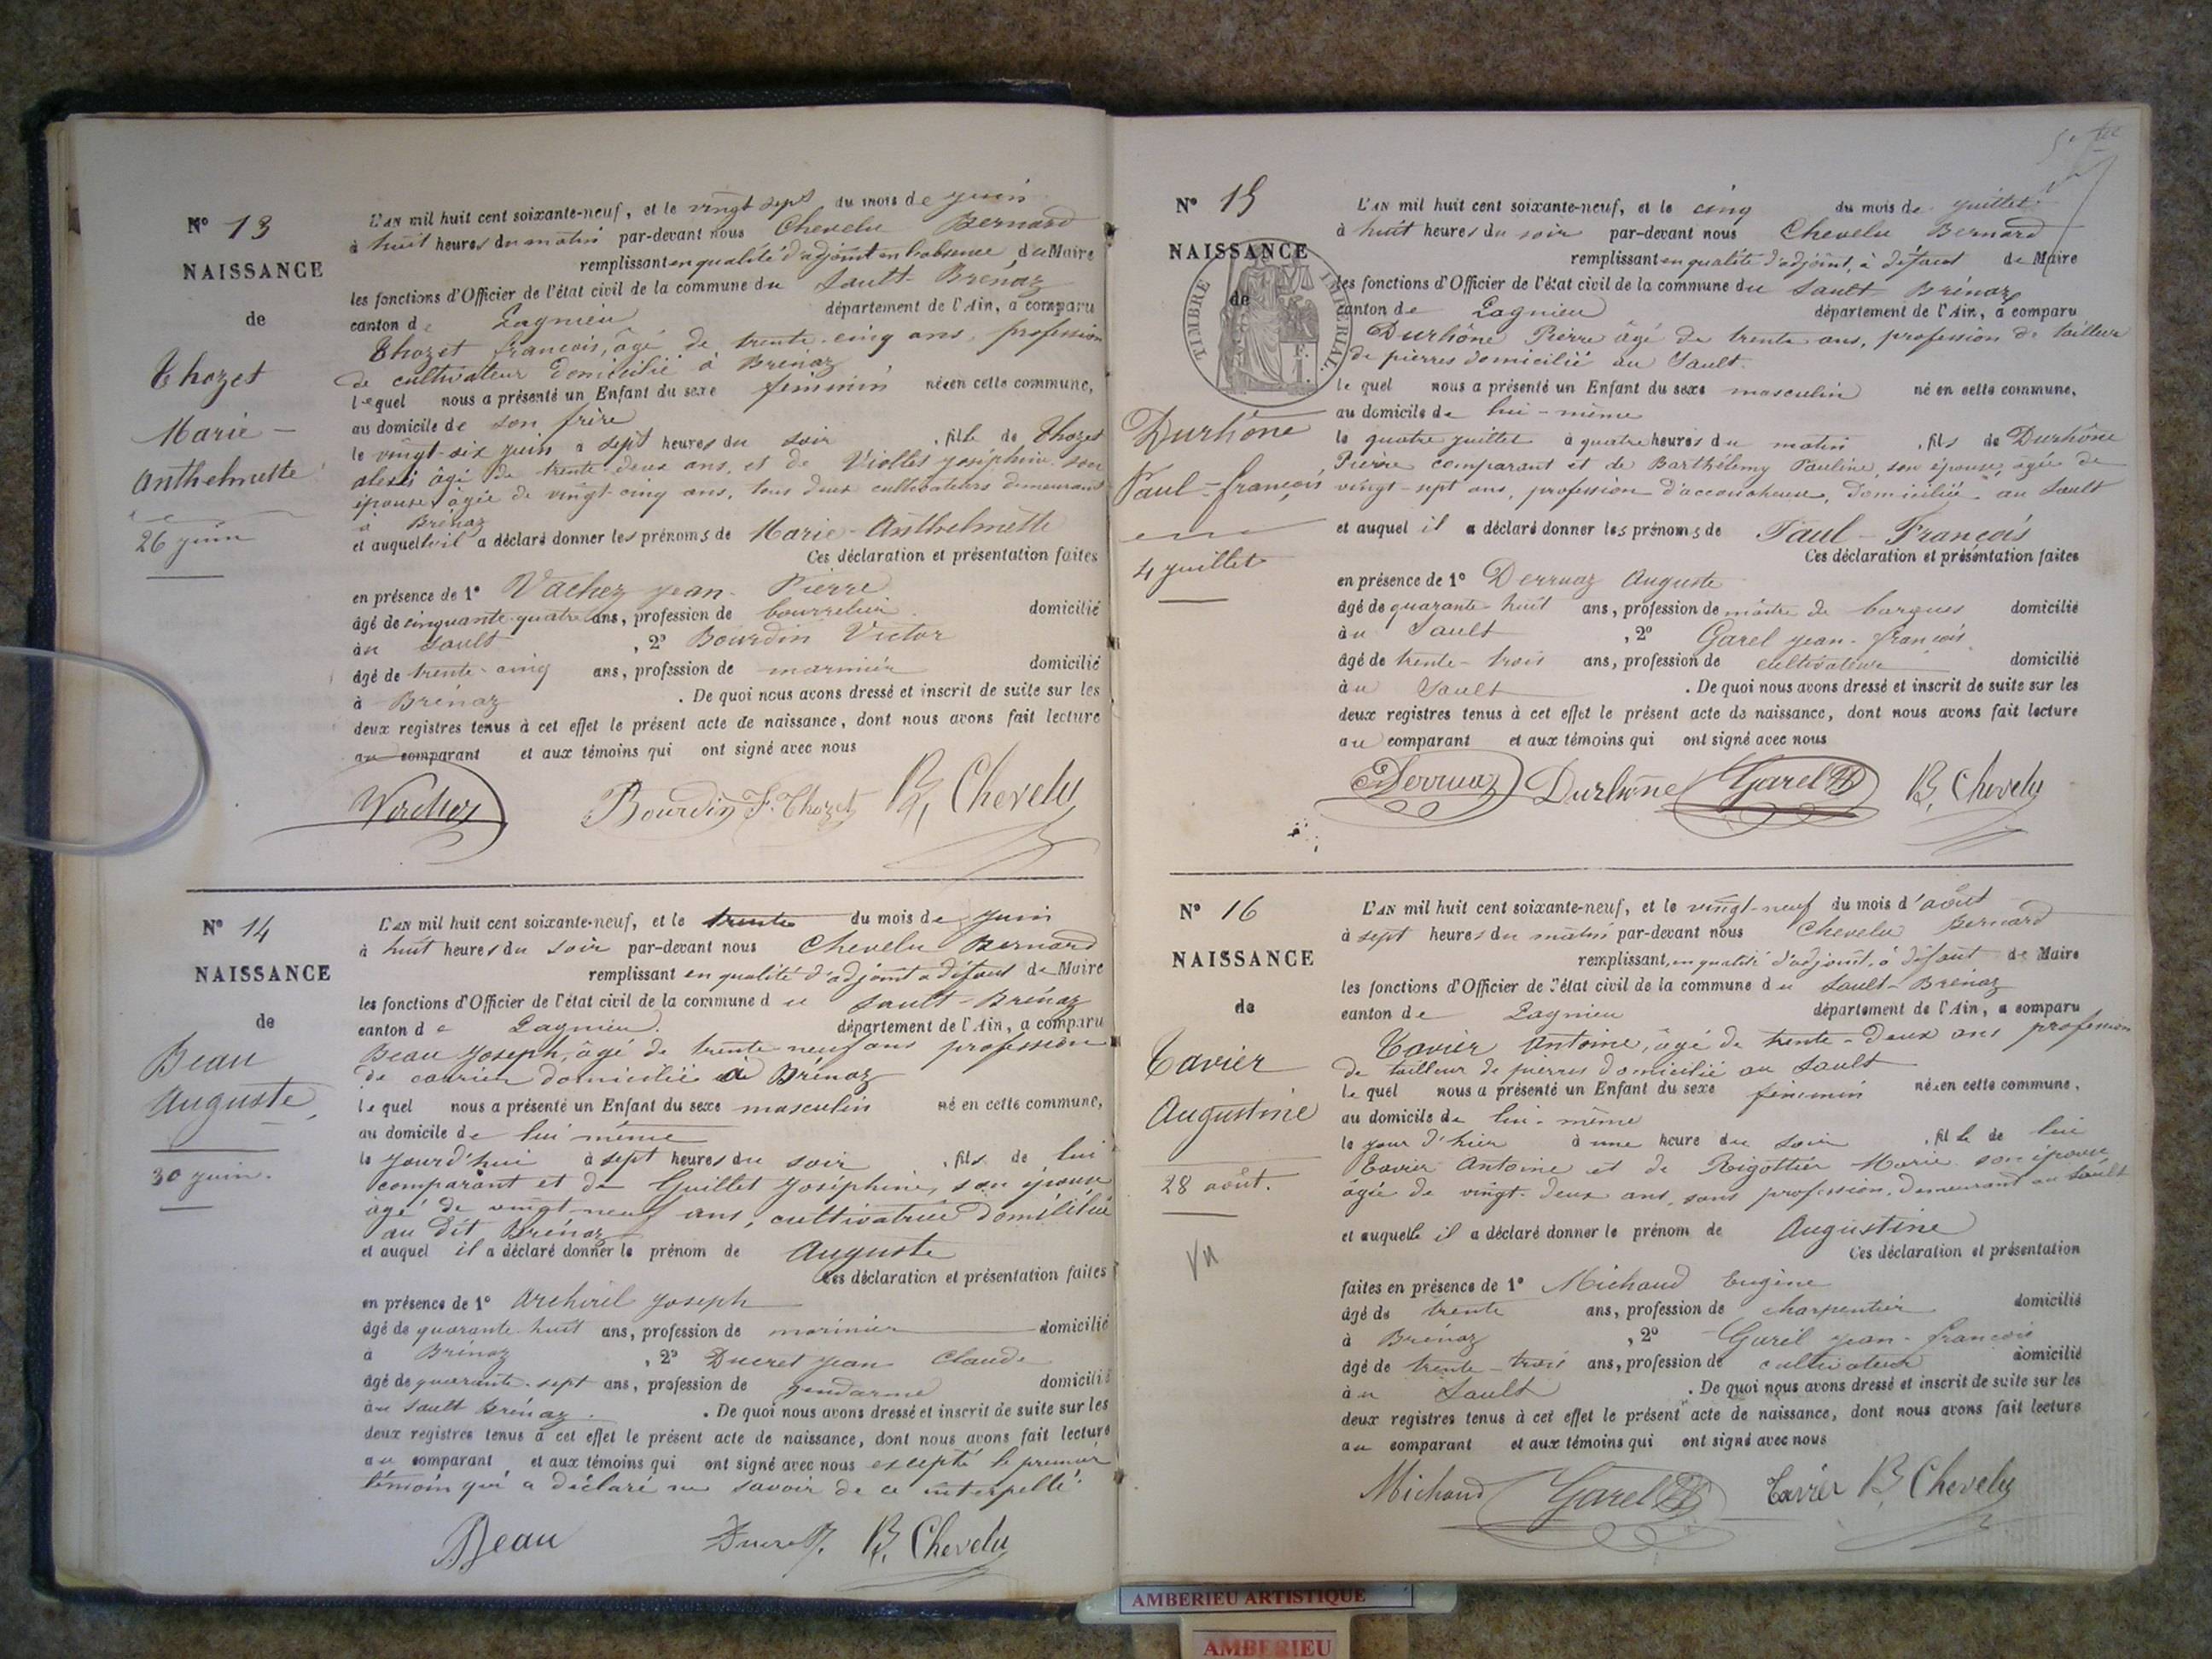 N° 13
NAISSANCE
de
Thozet
Marie -
Anthelmette
26 juin
L'AN mil huit cent soixante-neuf, et le vingt sept du mois de juin
à huit heures du matin par-devant nous Chevelu Bernard
remplissant en qualité d'adjoint en l'absence du Maire
les fonctions d'Officier de l'état civil de la commune du Sault-Brénaz
canton de Lagnieu département de l'Ain, a comparu
Thozet françois, âgé de trente-cinq ans, profession
de cultivateur domicilié à Brénaz
lequel nous a présenté un Enfant du sexe féminin née en cette commune,
au domicile de son frère
le vingt-six juin à sept heures du soir, fille de Thozet
alexis âgé de trente-deux ans, et de Viollet joséphine son
épouse âgée de vingt-cinq ans, tous deux cultivateurs demeurant
à Brénaz
et auquelle il a déclaré donner les prénoms de Marie-Anthelmette
Ces déclaration et présentation faites
en présence de 1° Vachez jean-Pierre
âgé de cinquante-quatre ans, profession de bourrelier domicilié
au Sault, 2° Bourdin Victor
âgé de trente-cinq ans, profession de marinier domicilié
à Brénaz. De quoi nous avons dressé et inscrit de suite sur les
deux registres tenus à cet effet le présent acte de naissance, dont nous avons fait lecture
au comparant et aux témoins qui ont signé avec nous
Vachez Bourdin F. Thozet B. Chevelu
N° 14
NAISSANCE
de
Beau
Auguste
30 juin.
L'AN mil huit cent soixante-neuf, et le trente du mois de juin
à huit heures du soir par-devant nous Chevelu Bernard
remplissant en qualité d'adjoint à défaut de Maire
les fonctions d'Officier de l'état civil de la commune du Sault-Brénaz
canton de Lagnieu. département de l'Ain, a comparu
Beau Joseph, âgé de trente neuf ans profession
de carrier domicilié à Brénaz
lequel nous a présenté un Enfant du sexe masculin né en cette commune,
au domicile de lui même
le jourd'hui à sept heures du soir, fils de lui
comparant et de Guillet Joséphine, son épouse
âgé de vingt-neuf ans, cultivatrice domiciliée
au dit Brénaz
et auquel il a déclaré donner le prénom de Auguste
Ces déclaration et présentation faites
en présence de 1° Archirel Joseph
âgé de quarante-huit ans, profession de marinier domicilié
à Brénaz, 2° Ducret jean Claude
âgé de quarante-sept ans, profession de gendarme domicilié
au Sault Brénaz. De quoi nous avons dressé et inscrit de suite sur les
deux registres tenus à cet effet le présent acte de naissance, dont nous avons fait lecture
au comparant et aux témoins qui ont signé avec nous excepté le premier
témoin qui a déclaré ne savoir de ce interpellé.
Beau Ducret B. Chevelu
N° 15
NAISSANCE
de
TIMBRE IMPÉRIAL
Durhône
Paul-françois
4 juillet
L'AN mil huit cent soixante-neuf, et le cinq du mois de juillet
à huit heures du soir par-devant nous Chevelu Bernard
remplissant en qualité d'adjoint, à défaut de Maire
les fonctions d'Officier de l'état civil de la commune du Sault Brénaz
canton de Lagnieu département de l'Ain, a comparu
Durhône Pierre âgé de trente ans, profession de tailleur
de pierres domicilié au Sault.
le quel nous a présenté un Enfant du sexe masculin né en cette commune,
au domicile de lui-même
le quatre juillet à quatre heures du matin, fils de Durhône
Pierre comparant et de Barthélemy Pauline, son épouse, âgée de
vingt-sept ans, profession d'accoucheuse, domiciliée au Sault
et auquel il a déclaré donner les prénoms de Paul-François
Ces déclaration et présentation faites
en présence de 1° Derruaz Auguste
âgé de quarante-huit ans, profession de maître de barques domicilié
au Sault, 2° Garel jean-françois
âgé de trente-trois ans, profession de cultivateur domicilié
au Sault. De quoi nous avons dressé et inscrit de suite sur les
deux registres tenus à cet effet le présent acte de naissance, dont nous avons fait lecture
au comparant et aux témoins qui ont signé avec nous
Derruaz Durhône Garel B. Chevelu
N° 16
NAISSANCE
de
Tavier
Augustine
28 août.
Vu
L'AN mil huit cent soixante-neuf, et le vingt-neuf du mois d'août
à sept heures du matin par-devant nous Chevelu Bernard
remplissant, en qualité d'adjoint, à défaut de Maire
les fonctions d'Officier de l'état civil de la commune du Sault-Brénaz
canton de Lagnieu département de l'Ain, a comparu
Tavier Antoine, âgé de trente-deux ans profession
de tailleur de pierres domicilié au Sault
le quel nous a présenté un Enfant du sexe féminin née en cette commune,
au domicile de lui-même
le jour d'hier à une heure du soir, fille de lui
Tavier Antoine et de Rigottier Marie son épouse
âgée de vingt-deux ans, sans profession, demeurant au Sault
et auquelle il a déclaré donner le prénom de Augustine
Ces déclaration et présentation
faites en présence de 1° Michaud Eugène
âgé de trente ans, profession de charpentier domicilié
à Brénaz, 2° Garel jean-françois
âgé de trente-trois ans, profession de cultivateur domicilié
au Sault. De quoi nous avons dressé et inscrit de suite sur les
deux registres tenus à cet effet le présent acte de naissance, dont nous avons fait lecture
au comparant et aux témoins qui ont signé avec nous
Michaud Garel Tavier B. Chevelu
AMBERIEU ARTISTIQUE
AMBERIEU